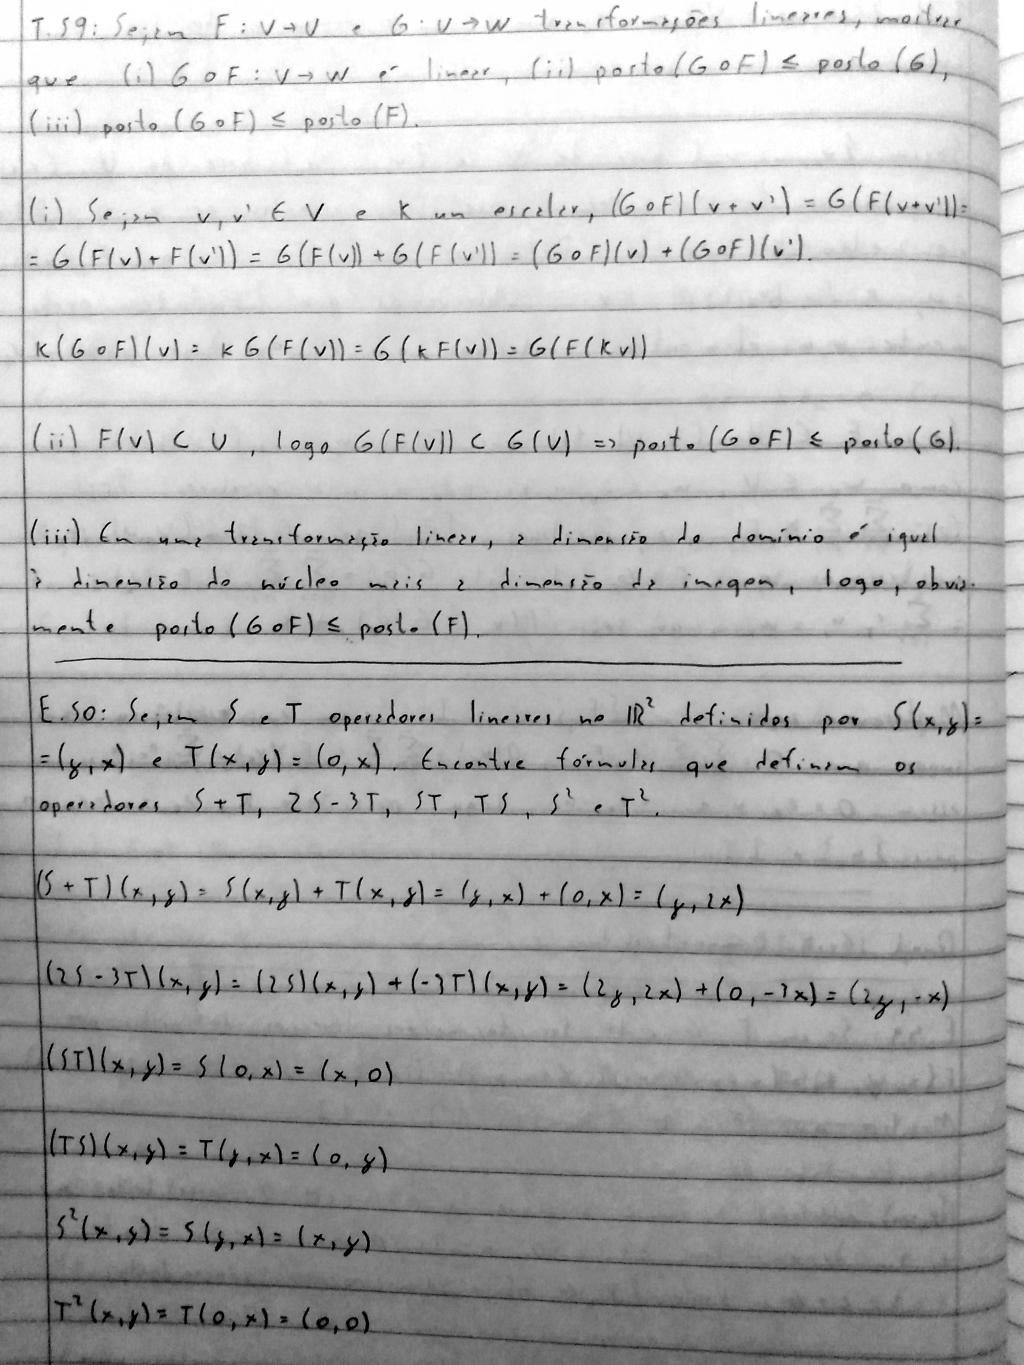 T.59: Sejam F: V→U e G: U→W transformações lineares, mostrar
que (i) G∘F: V→W é linear, (ii) posto(G∘F) ≤ posto(G),
(iii) posto (G∘F) ≤ posto (F).
(i) Sejam v, v' ∈ V e k um escalar, (G∘F)(v+v') = G(F(v+v')) =
= G(F(v)+F(v')) = G(F(v))+G(F(v')) = (G∘F)(v)+(G∘F)(v').
k(G∘F)(v) = k G(F(v)) = G(kF(v)) = G(F(kv))
(ii) F(V) ⊂ U, logo G(F(V)) ⊂ G(U) => posto (G∘F) ≤ posto(G).
(iii) Em uma transformação linear, a dimensão do domínio é igual
à dimensão do núcleo mais a dimensão da imagem, logo, obvia-
mente posto (G∘F) ≤ posto (F).
E.50: Sejam S e T operadores lineares no ℝ² definidos por S(x,y)=
=(y,x) e T(x,y)=(0,x). Encontre fórmulas que definam os
operadores S+T, 2S-3T, ST, TS, S² e T².
(S+T)(x,y) = S(x,y)+T(x,y) = (y,x)+(0,x) = (y,2x)
(2S-3T)(x,y) = (2S)(x,y)+(-3T)(x,y) = (2y,2x)+(0,-3x) = (2y,-x)
(ST)(x,y) = S(0,x) = (x,0)
(TS)(x,y) = T(y,x) = (0,y)
S²(x,y) = S(y,x) = (x,y)
T²(x,y) = T(0,x) = (0,0)